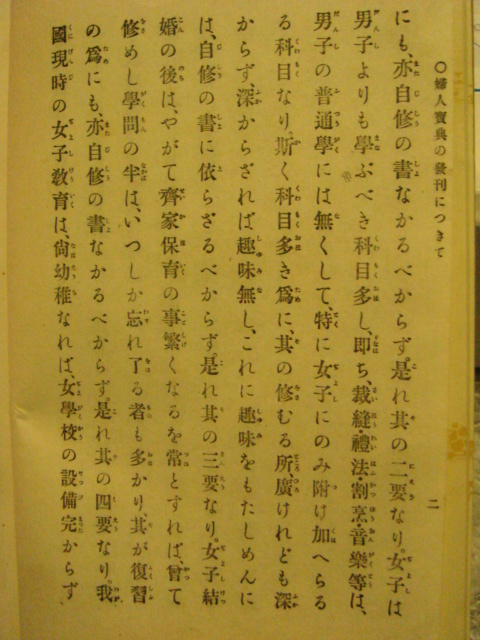 ○婦人寶典の發刊につきて
二
にも、亦自修の書なかるべからず。是れ其の二要なり。女子は
男子よりも學ぶべき科目多し、即ち、裁縫・禮法・割烹・音樂等は、
男子の普通學には無くして、特に女子にのみ附け加へらる
る科目なり。斯く科目多き爲に、其の修むる所、廣けれども深
からず、深からざれば趣味無し、これに趣味をもたしめんに
は、自修の書に依らざるべからず。是れ其の三要なり。女子結
婚の後は、やがて齊家保育の事繁くなるを常とすれば、曾て
修めし學問の半は、いつしか忘れ了る者も多かり、其が復習
の爲にも、亦自修の書なかるべからず。是れ其の四要なり。我
國現時の女子敎育は、尙幼稚なれば、女學校の設備完からず、